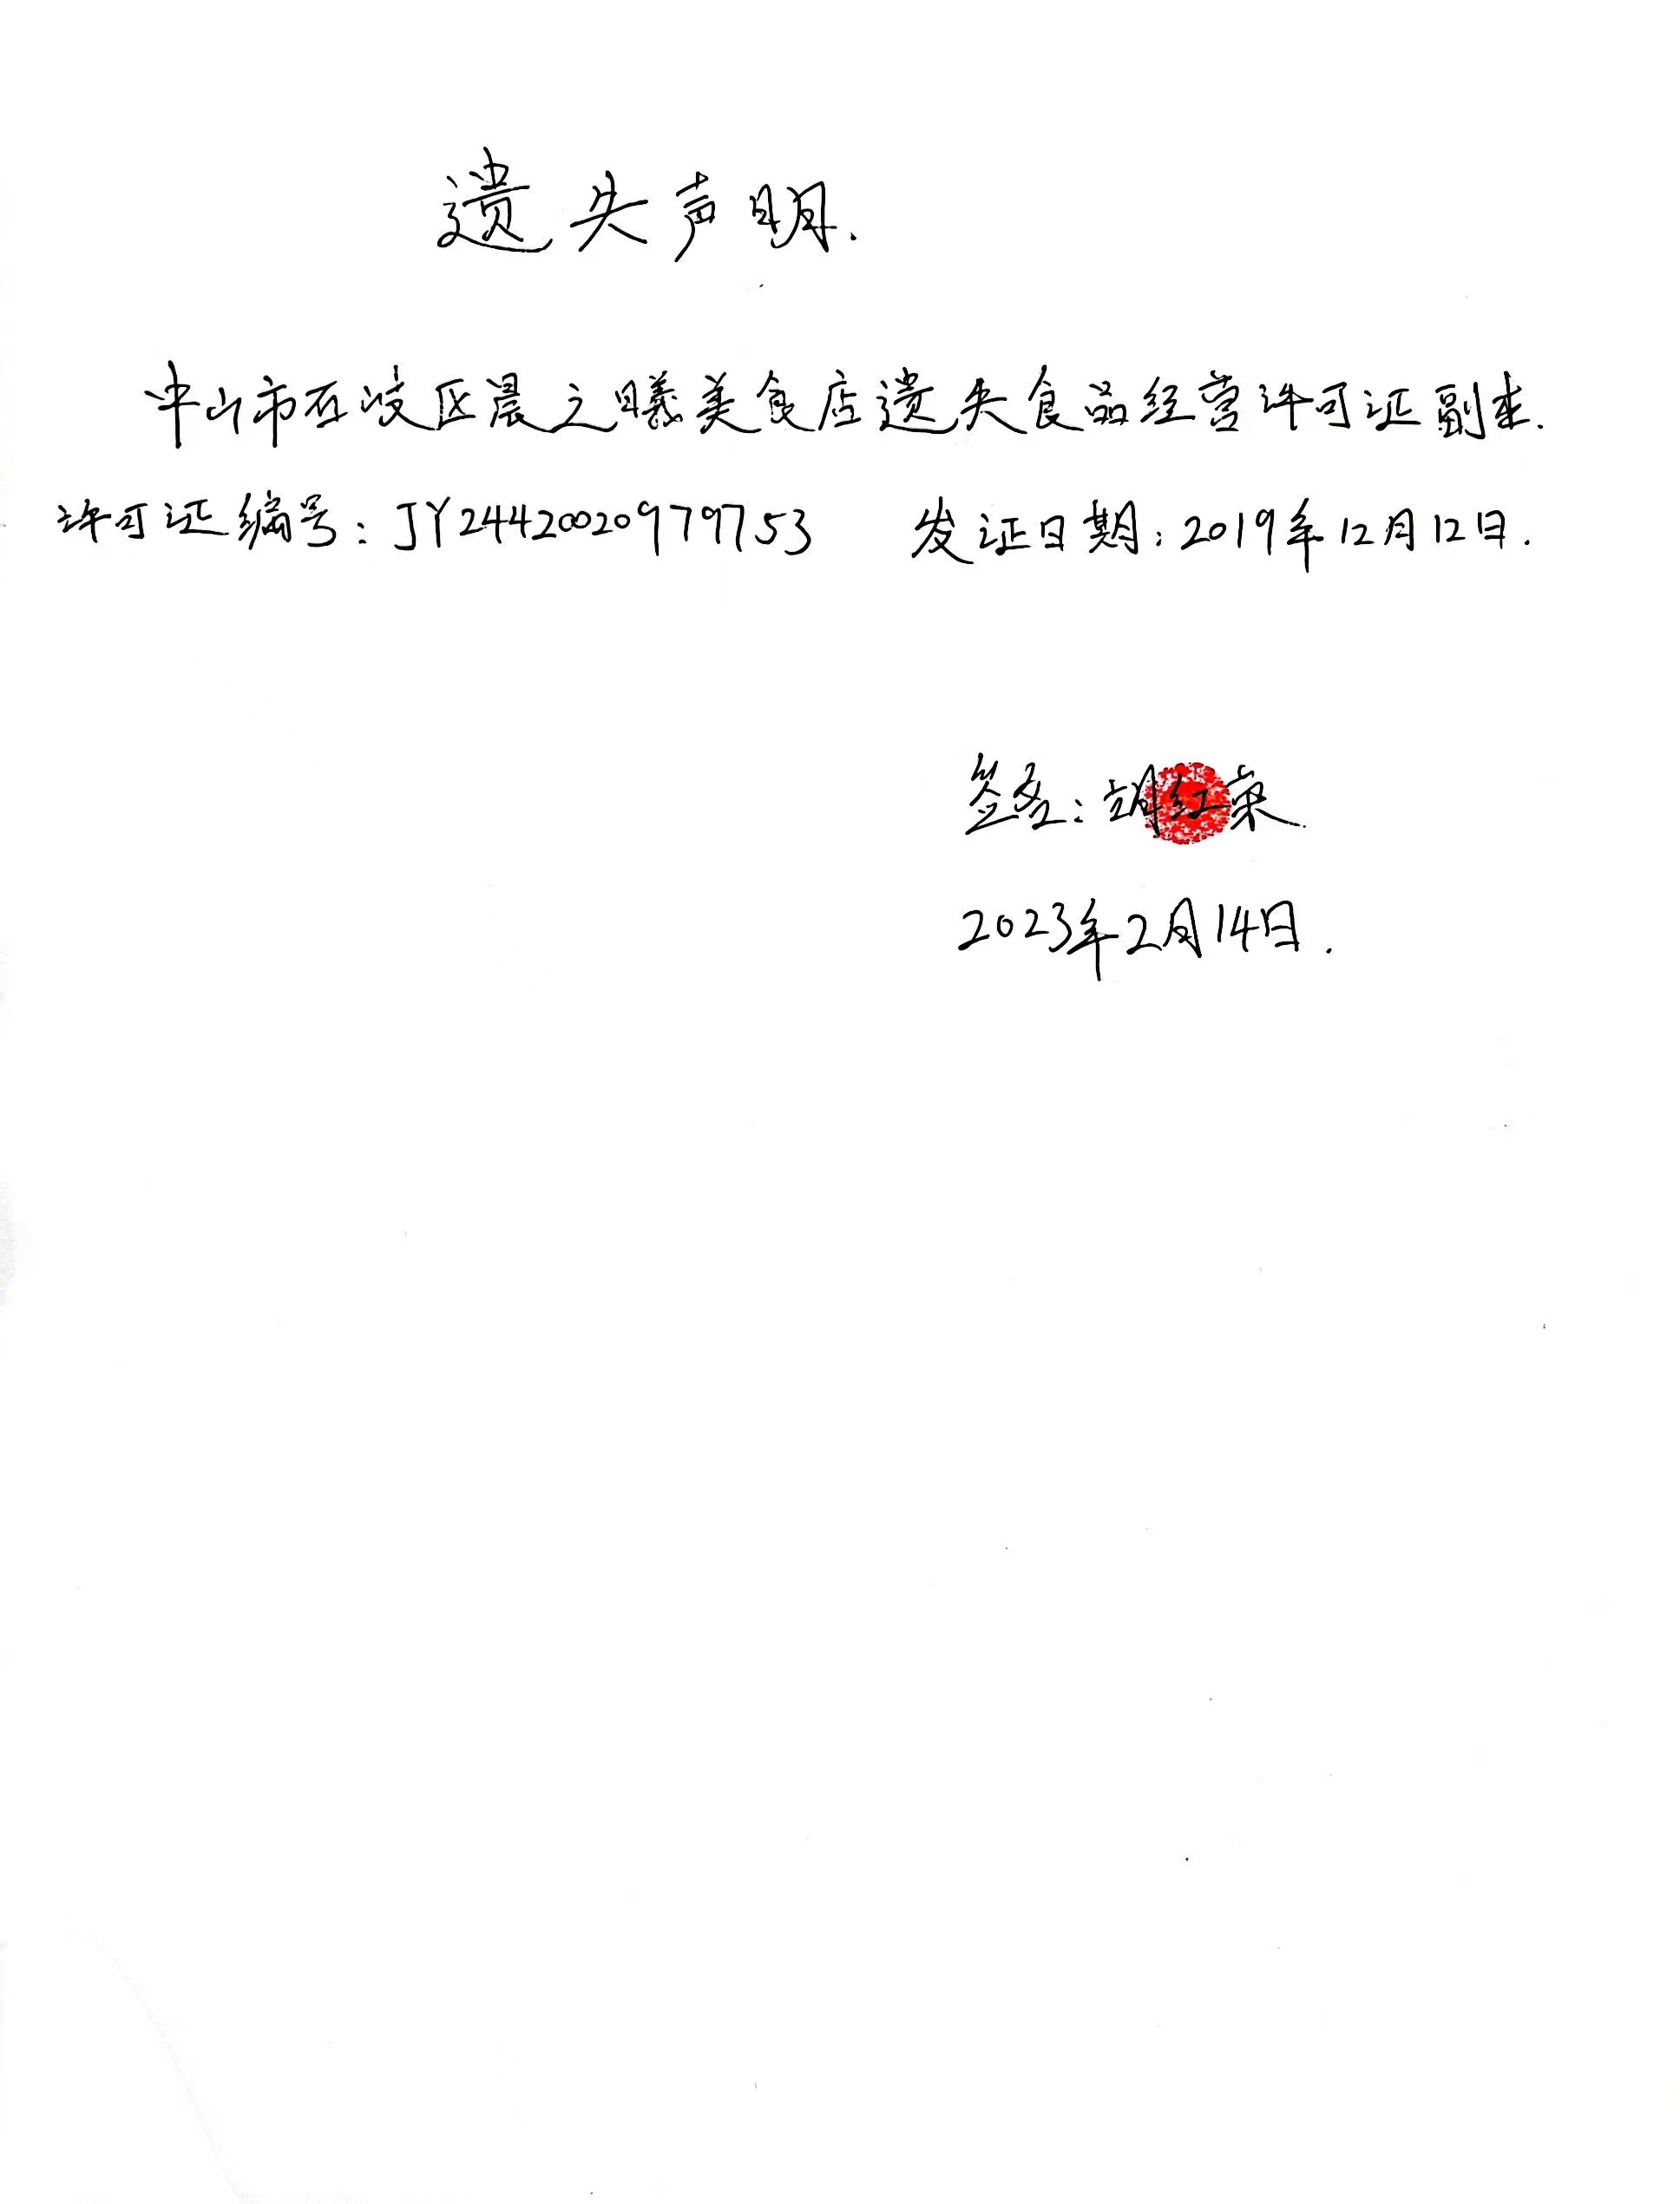 遗失声明.
中山市石岐区晨之曦美食店遗失食品经营许可证副本.
许可证编号:JY24420020979753 发证日期:2019年12月12日.
签名:胡红
2023年2月14日.